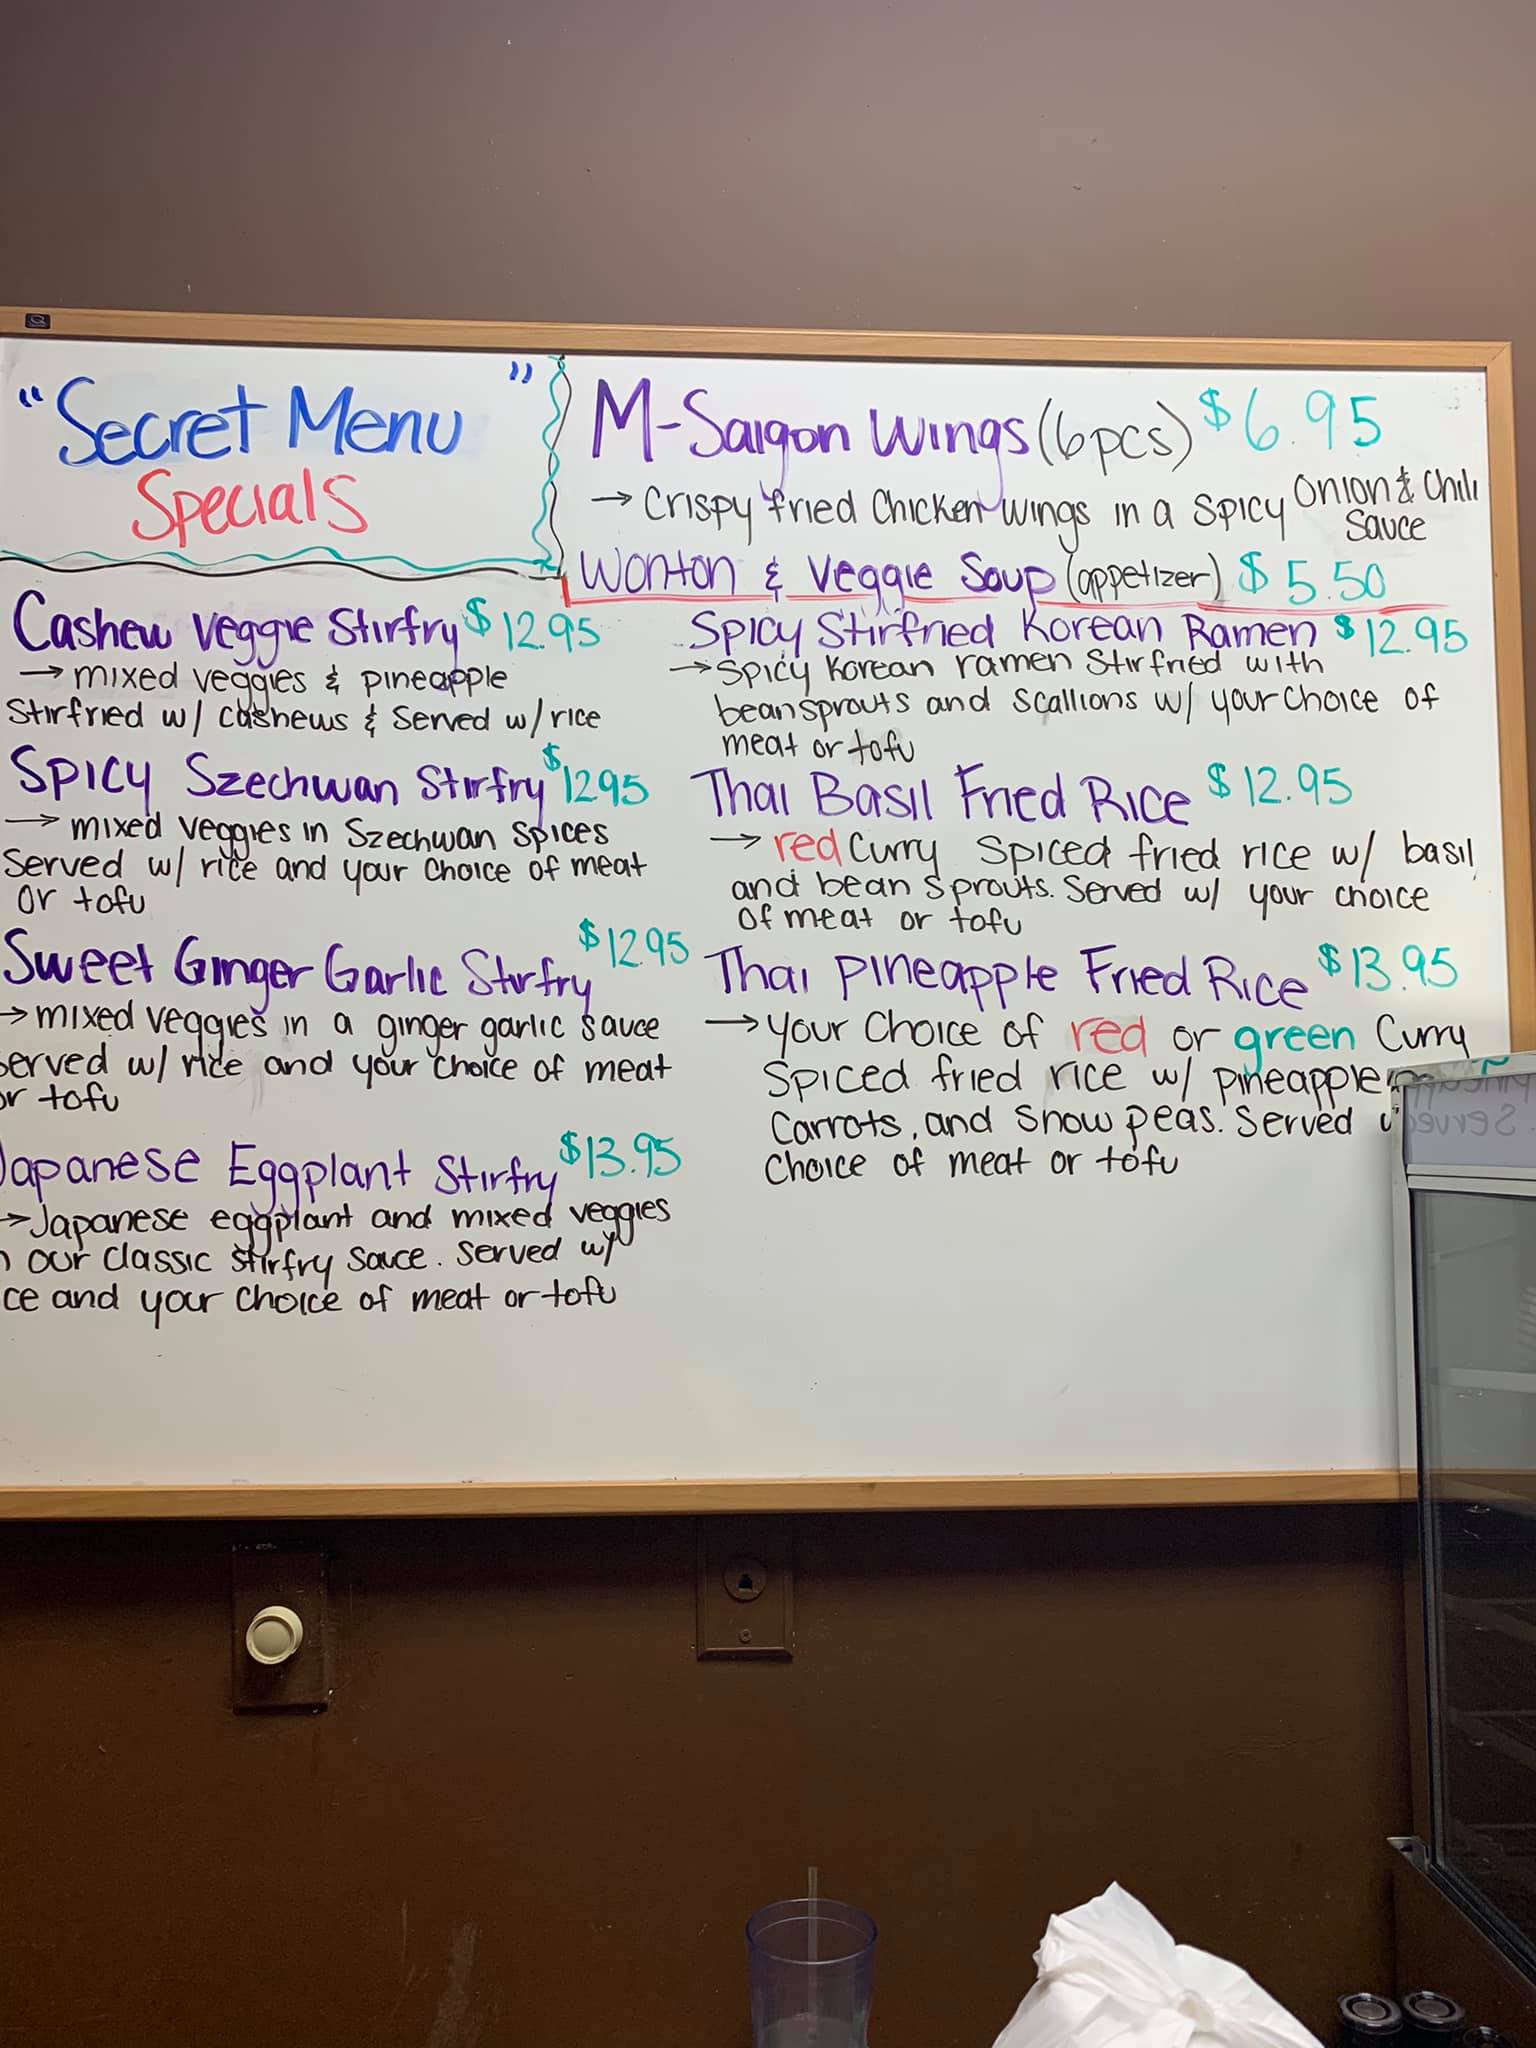 "Secret Menu"
Specials
Cashew Veggie Stirfry $12.95
→ mixed veggies & pineapple
Stirfried w/ cashews & Served w/ rice
Spicy Szechwan Stirfry $1295
→ mixed veggies in Szechwan spices
Served w/ rice and your choice of meat
or tofu
Sweet Ginger Garlic Stirfry $12.95
→ mixed veggies in a ginger garlic sauce
served w/ rice and your choice of meat
or tofu
Japanese Eggplant Stirfry $13.95
→ Japanese eggplant and mixed veggies
our classic stirfry sauce. served w/
and your choice of meat or tofu
M-Saigon Wings (6pcs) $6.95
→ Crispy fried Chicken wings in a spicy Onion & Chili
Sauce
Wonton & Veggie Soup (appetizer) $5.50
Spicy Stirfried Korean Ramen $12.95
→ Spicy Korean ramen Stirfried with
beansprouts and scallions w/ your choice of
meat or tofu
Thai Basil Fried Rice $12.95
→ red Curry Spiced fried rice w/ basil
and bean sprouts. Served w/ your choice
of meat or tofu
Thai Pineapple Fried Rice $13.95
→ your Choice of red or green Curry
Spiced fried rice w/ pineapple
Carrots, and Snow peas. Served
Choice of meat or tofu